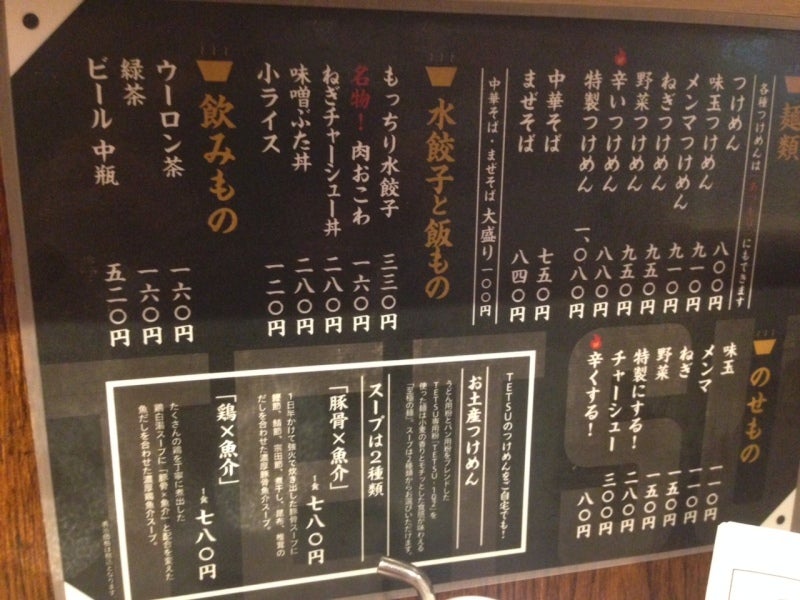 麺類
各種つけめんは
にもできます
つけめん 八〇〇円
味玉つけめん 九一〇円
メンマつけめん 九一〇円
ねぎつけめん 九一〇円
野菜つけめん 九五〇円
辛いつけめん 八八〇円
特製つけめん 一、〇八〇円
中華そば 七五〇円
まぜそば 八四〇円
中華そば・まぜそば 大盛り 一〇〇円
水餃子と飯もの
もっちり水餃子 三三〇円
名物！ 肉おこわ 一六〇円
ねぎチャーシュー丼 二八〇円
味噌ぶた丼 二八〇円
小ライス 一二〇円
飲みもの
ウーロン茶 一六〇円
緑茶 一六〇円
ビール 中瓶 五二〇円
のせもの
味玉 一一〇円
メンマ 一一〇円
ねぎ 一一〇円
野菜 一五〇円
特製にする！ 二八〇円
チャーシュー 三〇〇円
辛くする！ 八〇円
TETSUのつけめんをご自宅でも！
お土産つけめん
うどん用粉とパン用粉をブレンドした
TETSU専用粉「TETSU
使った麺は小麦の香りとモチッとした食感が味わえる
「至極の麺」。スープは2種類からお選びいただけます。
スープは2種類
「豚骨×魚介」 1食 七八〇円
1日半かけて強火で炊き出した豚骨スープに
鰹節、鯖節、宗田節、煮干し、昆布、椎茸の
だしを合わせた濃厚豚骨魚介スープ。
「鶏×魚介」 1食 七八〇円
たくさんの鶏を丁寧に煮出した
鶏白湯スープに「豚骨×魚介」と配合を変えた
魚だしを合わせた濃厚鶏魚介スープ。
表示価格は税込となります